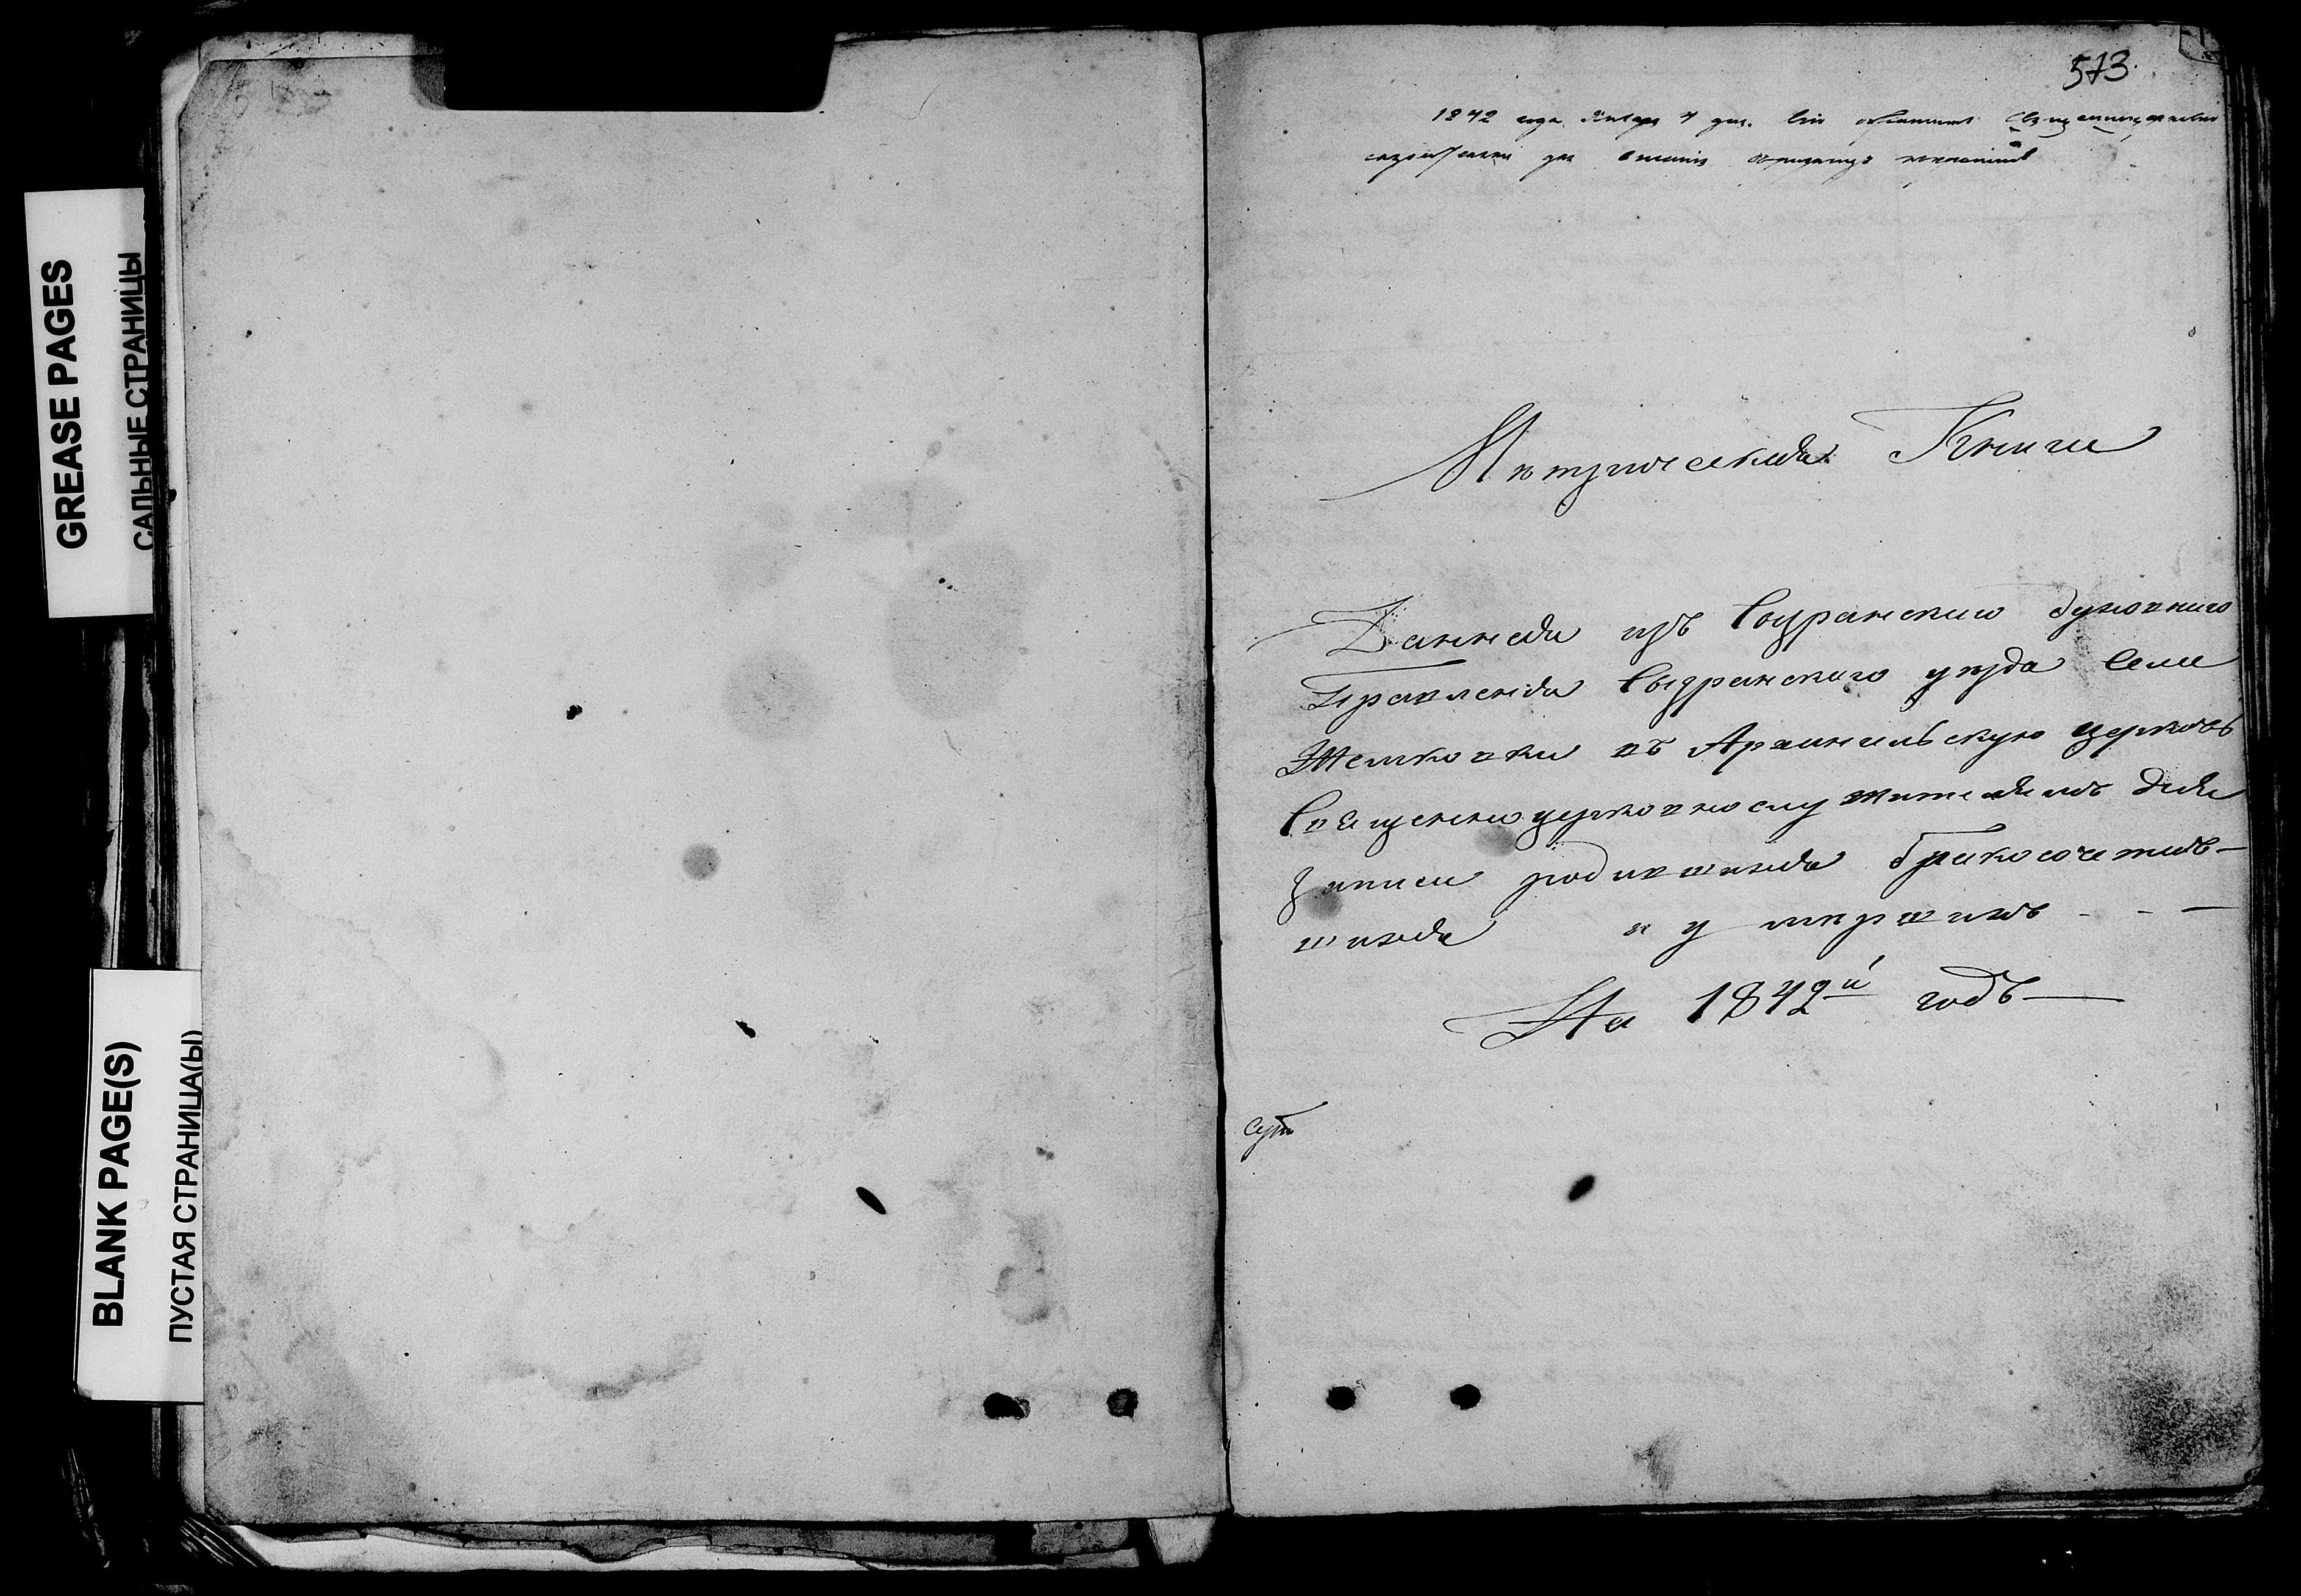 GREASE PAGES
САЛЬНЫЕ СТРАНИЦЫ
BLANK PAGE(S)
ПУСТАЯ СТРАНИЦА(Ы)
573
1842 года Января 4 дня.
для
Метрическая Книга
Данная изъ Сызранскаго духовнаго
Правленія Сызранскаго уѣзда Села
въ Архангельскую церковь
Священноцерковнослужителямъ для
записи родившихся бракосочетав-
шихся и умершихъ - - -
На 1842й годъ